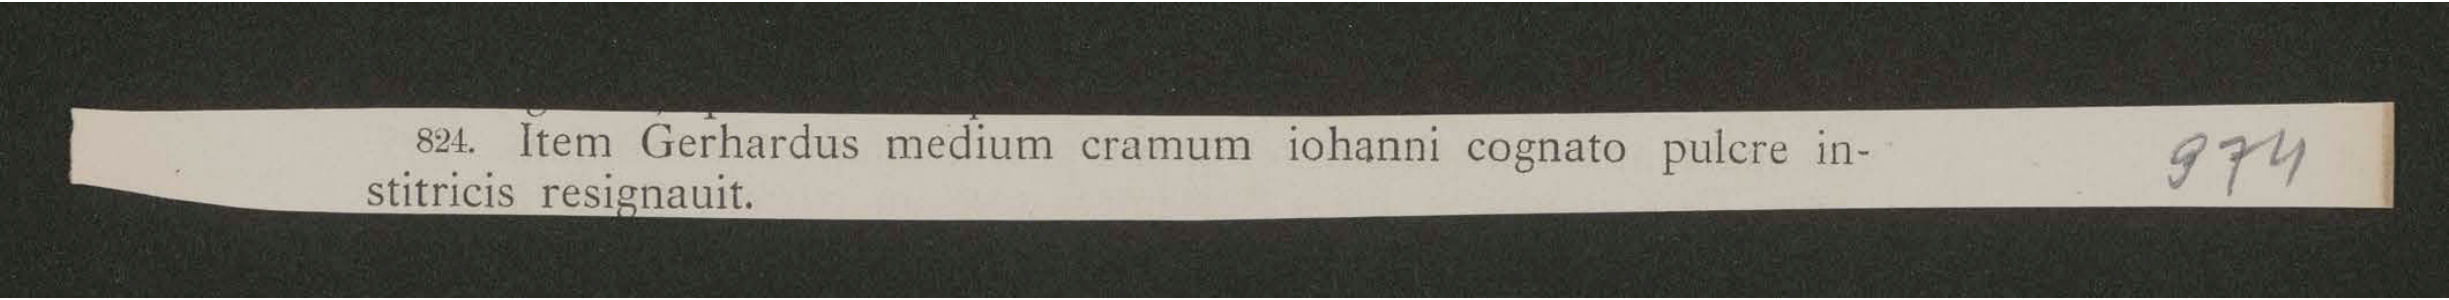 824. Item Gerhardus medium cramum iohanni cognato pulcre in-
stitricis resignauit.
974